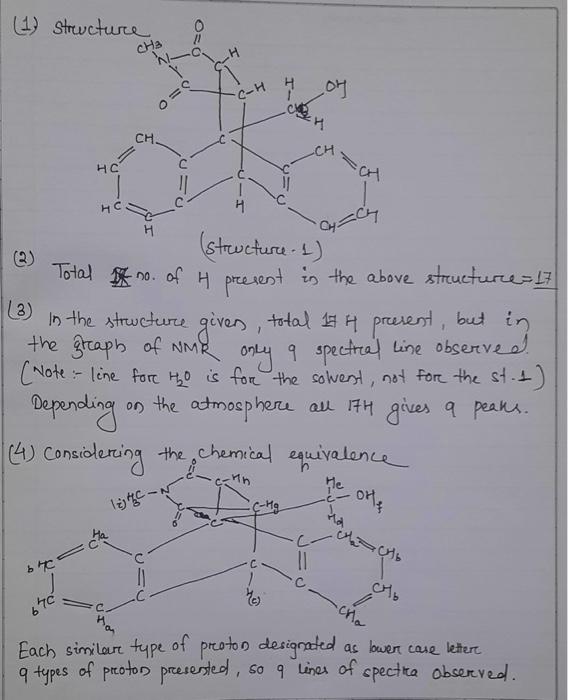 (1) structure
O
CH3
N
C
C
H
C
O
C-H
H
OH
C
H
CH
C
C
CH
HC
C
C
CH
HC
C
C
C
CH
H
H
CH
(structure-1)
(2)
Total no. of H present in the above structure = 17
(3) In the structure given, total 17 H present, but in
the graph of NMR only 9 spectral line observed.
(Note :- line for H2O is for the solvent, not for the st.1)
Depending on the atmosphere all 17H gives 9 peaks.
(4) Considering the chemical equivalence
O
C
C-Hh
He
(i) H3C-N
C-Hg
C-OHf
O
C
Hd
Ha
C
C
C
CHa
CHb
b HC
C
bHC
C
C
C
CHb
C
H(c)
CHa
Ha
Each similare type of proton designated as lower case letter
9 types of proton presented, so 9 lines of spectra observed.